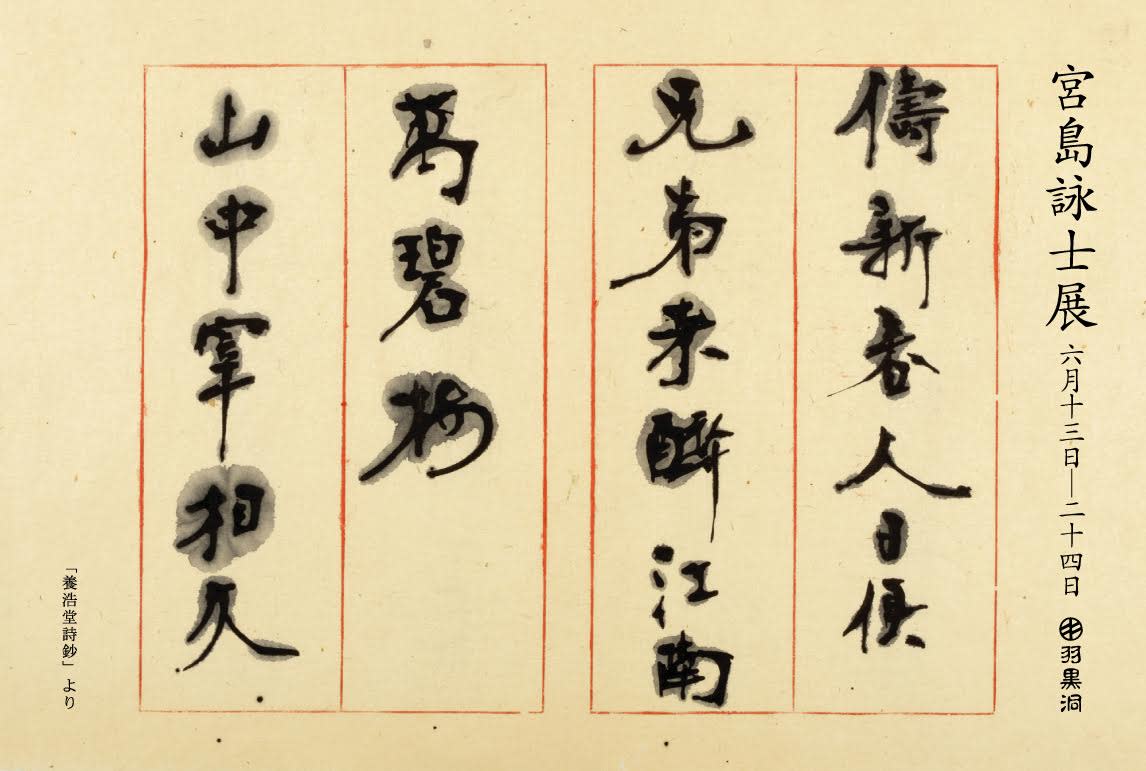 宮島詠士展 六月十三日―二十四日 羽黒洞
儔新春人日
兄弟来酔江南
萬碧
山中宰相久
「養浩堂詩鈔」より